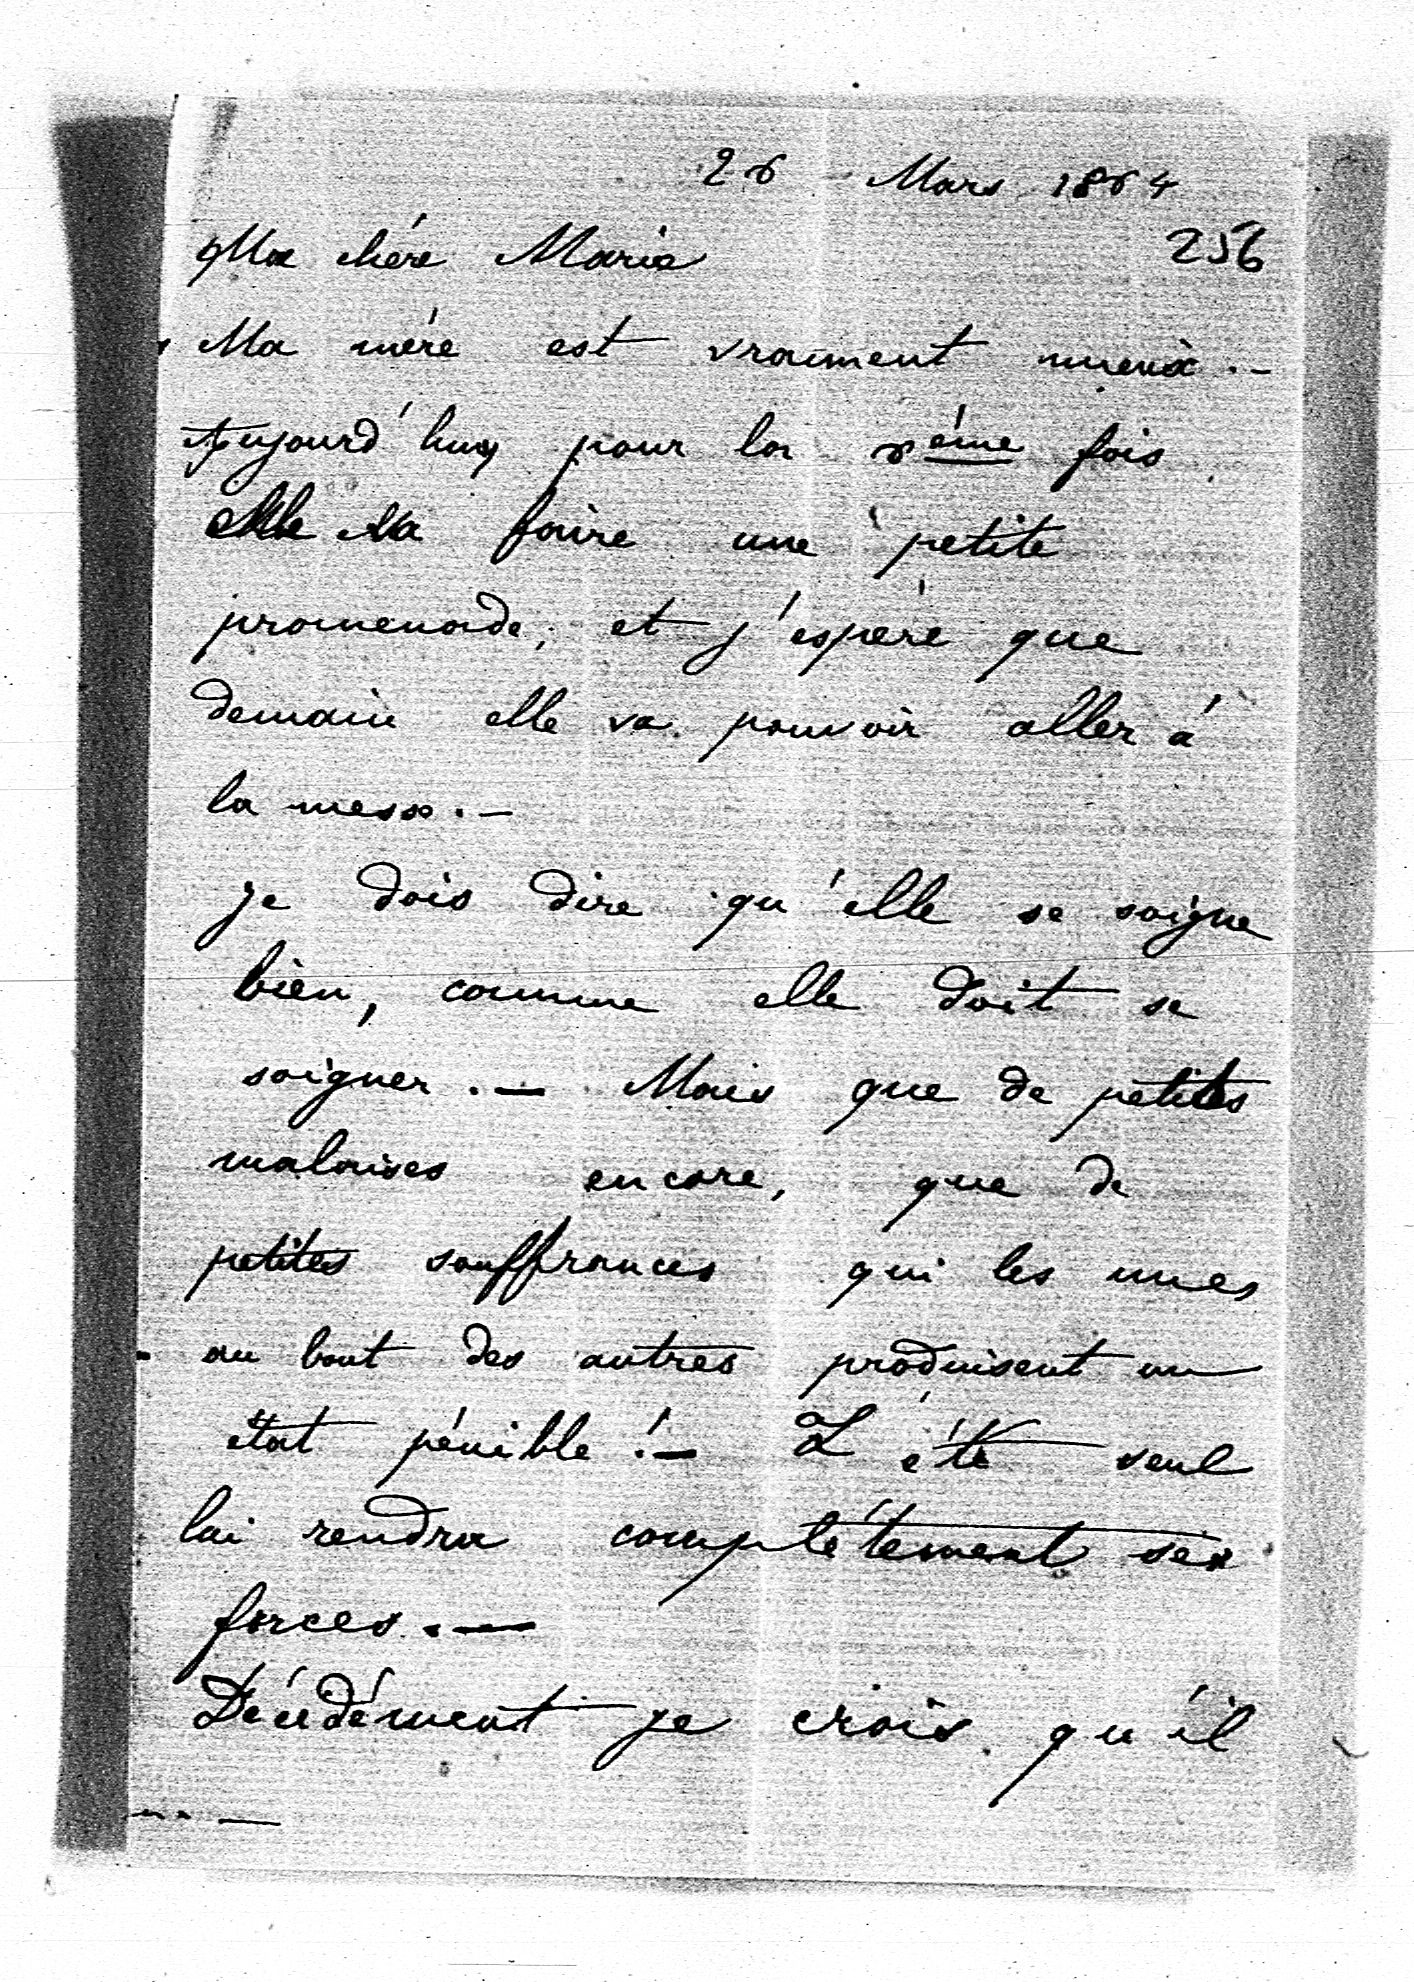 26 Mars 1864
256
Ma chére Marie
Ma mére est vraiment mieux. —
Aujourd'huy pour la 6éme fois
elle va faire une petite
promenade, et j'espére que
demain elle va pouvoir aller á
la messe. —
Je dois dire qu'elle se soigne
bien, comme elle doit se
soigner. — Mais que de petites
malaises encore, que de
petites souffrances qui les unes
au bout des autres produisent un
état pénible! — L'été seul
lui rendra complétement ses
forces. —
Décidément je crois qu'il